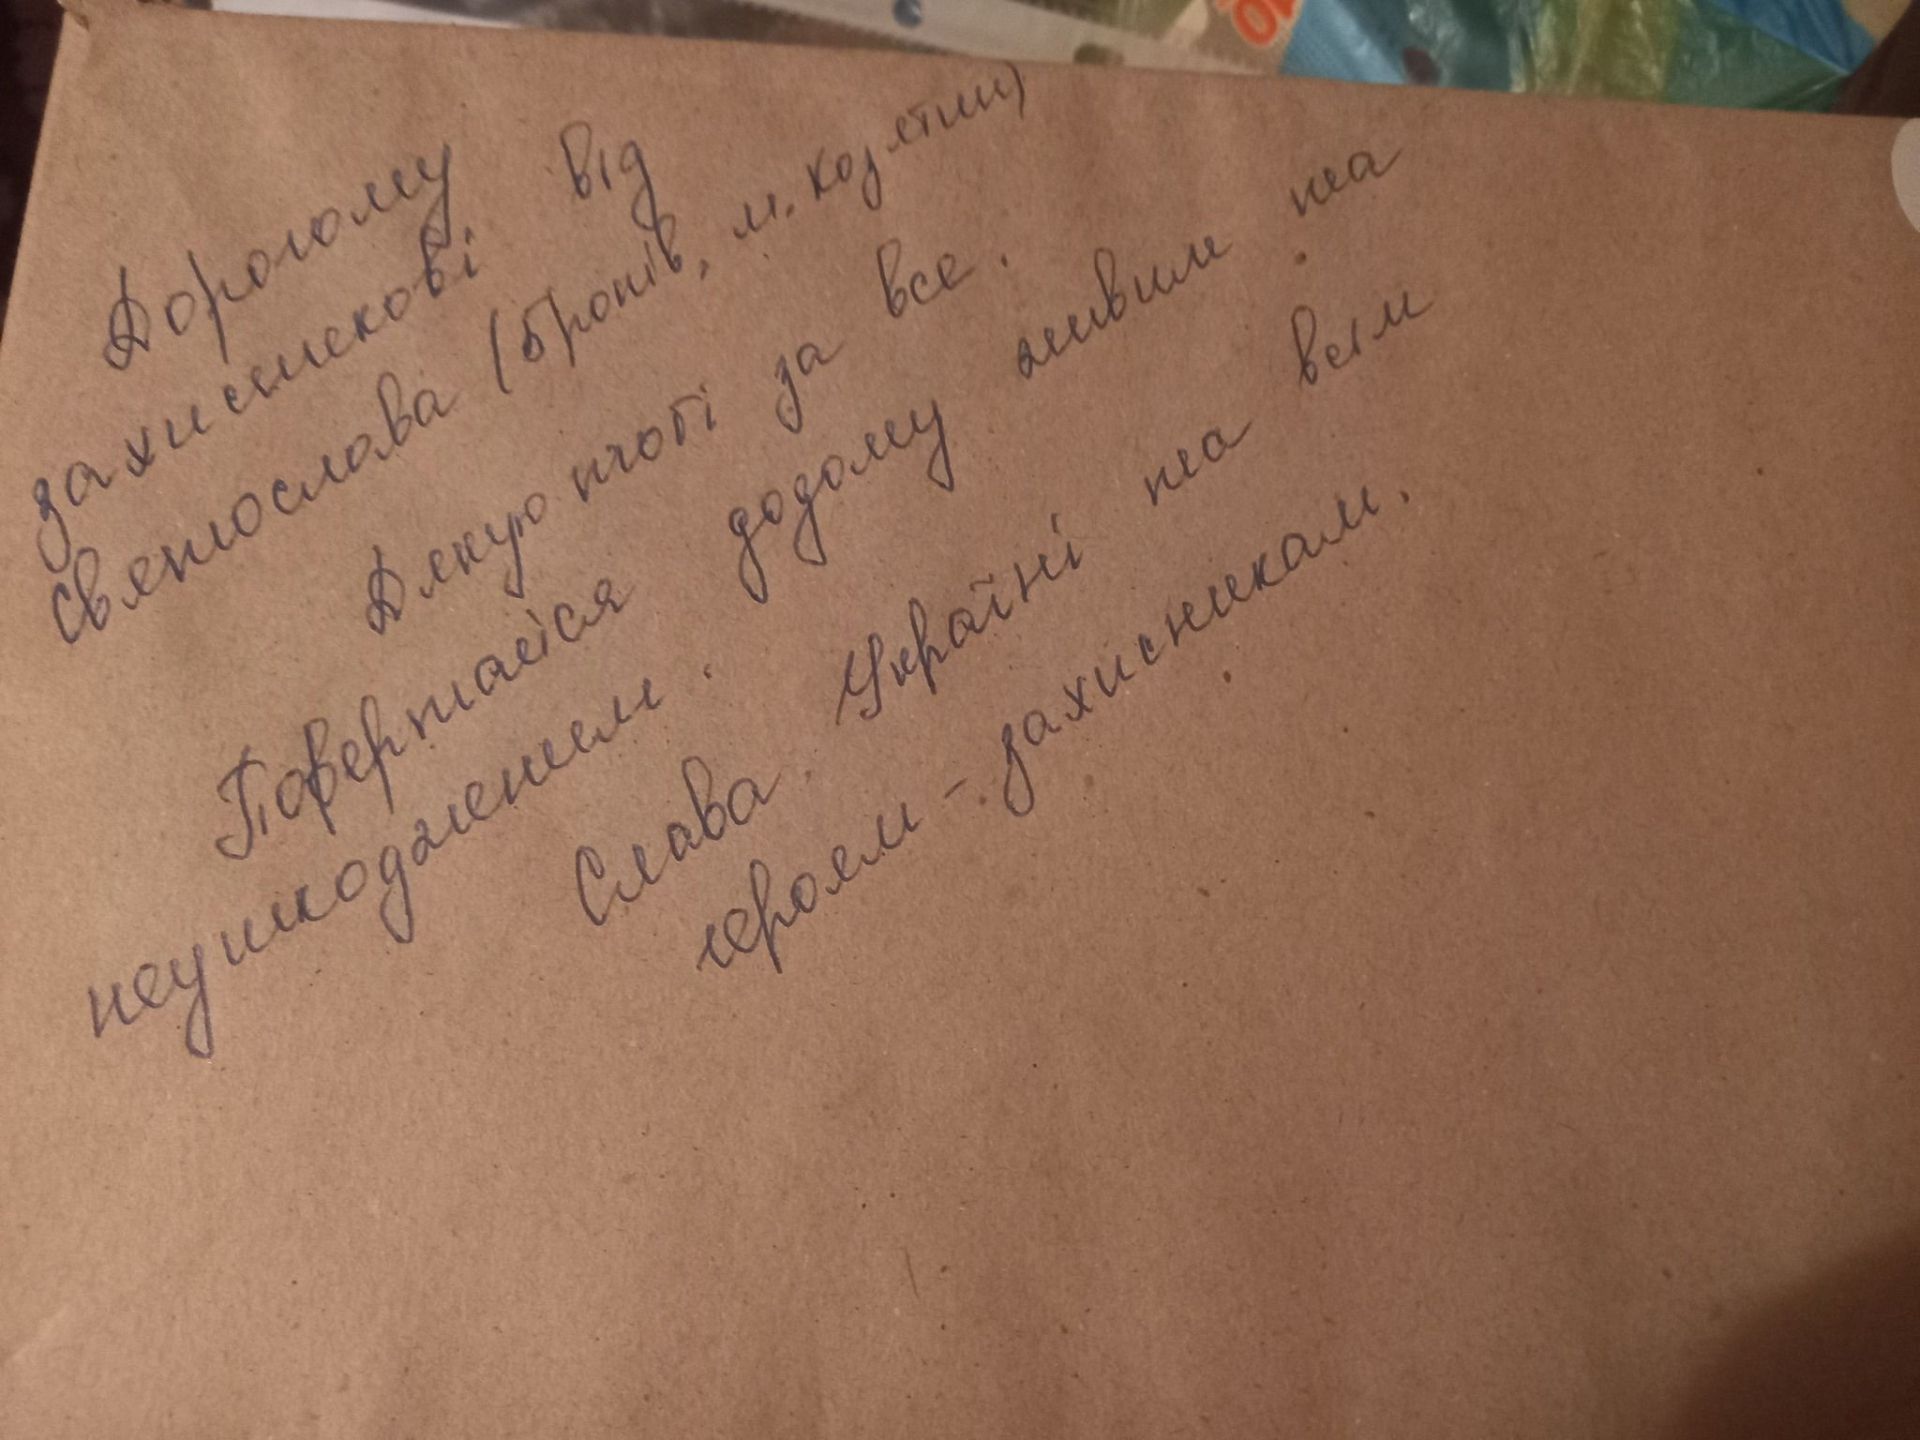 Дорогому
захисникові від
Святослава (5 років, м. Козятин)
Дякую тобі за все.
Повертайся додому живим та
неушкодженим.
Слава Україні та всім
героям - захисникам.